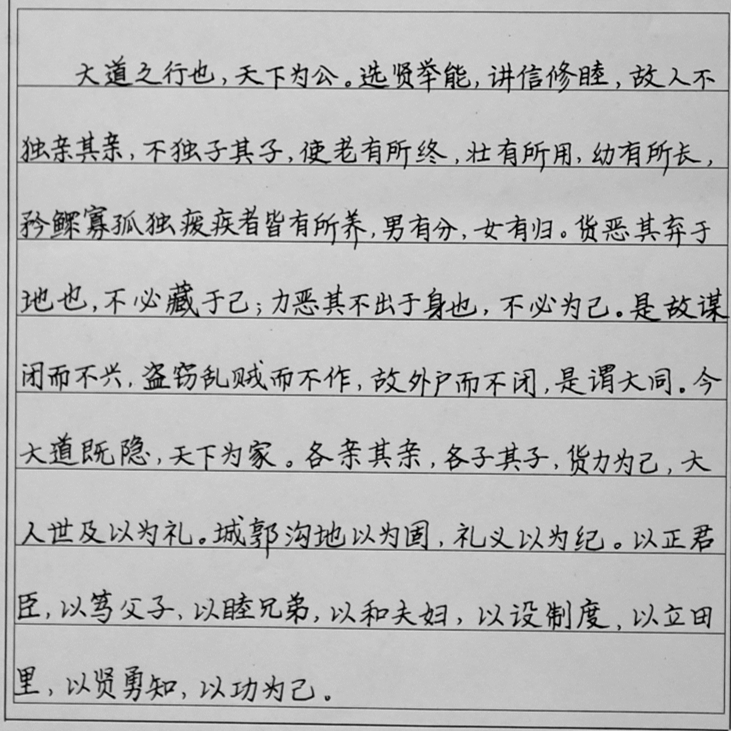 大道之行也，天下为公。选贤举能，讲信修睦，故人不
独亲其亲，不独子其子，使老有所终，壮有所用，幼有所长，
矜鳏寡孤独废疾者皆有所养，男有分，女有归。货恶其弃于
地也，不必藏于己；力恶其不出于身也，不必为己。是故谋
闭而不兴，盗窃乱贼而不作，故外户而不闭，是谓大同。今
大道既隐，天下为家。各亲其亲，各子其子，货力为己，大
人世及以为礼。城郭沟地以为固，礼义以为纪。以正君
臣，以笃父子，以睦兄弟，以和夫妇，以设制度，以立田
里，以贤勇知，以功为己。